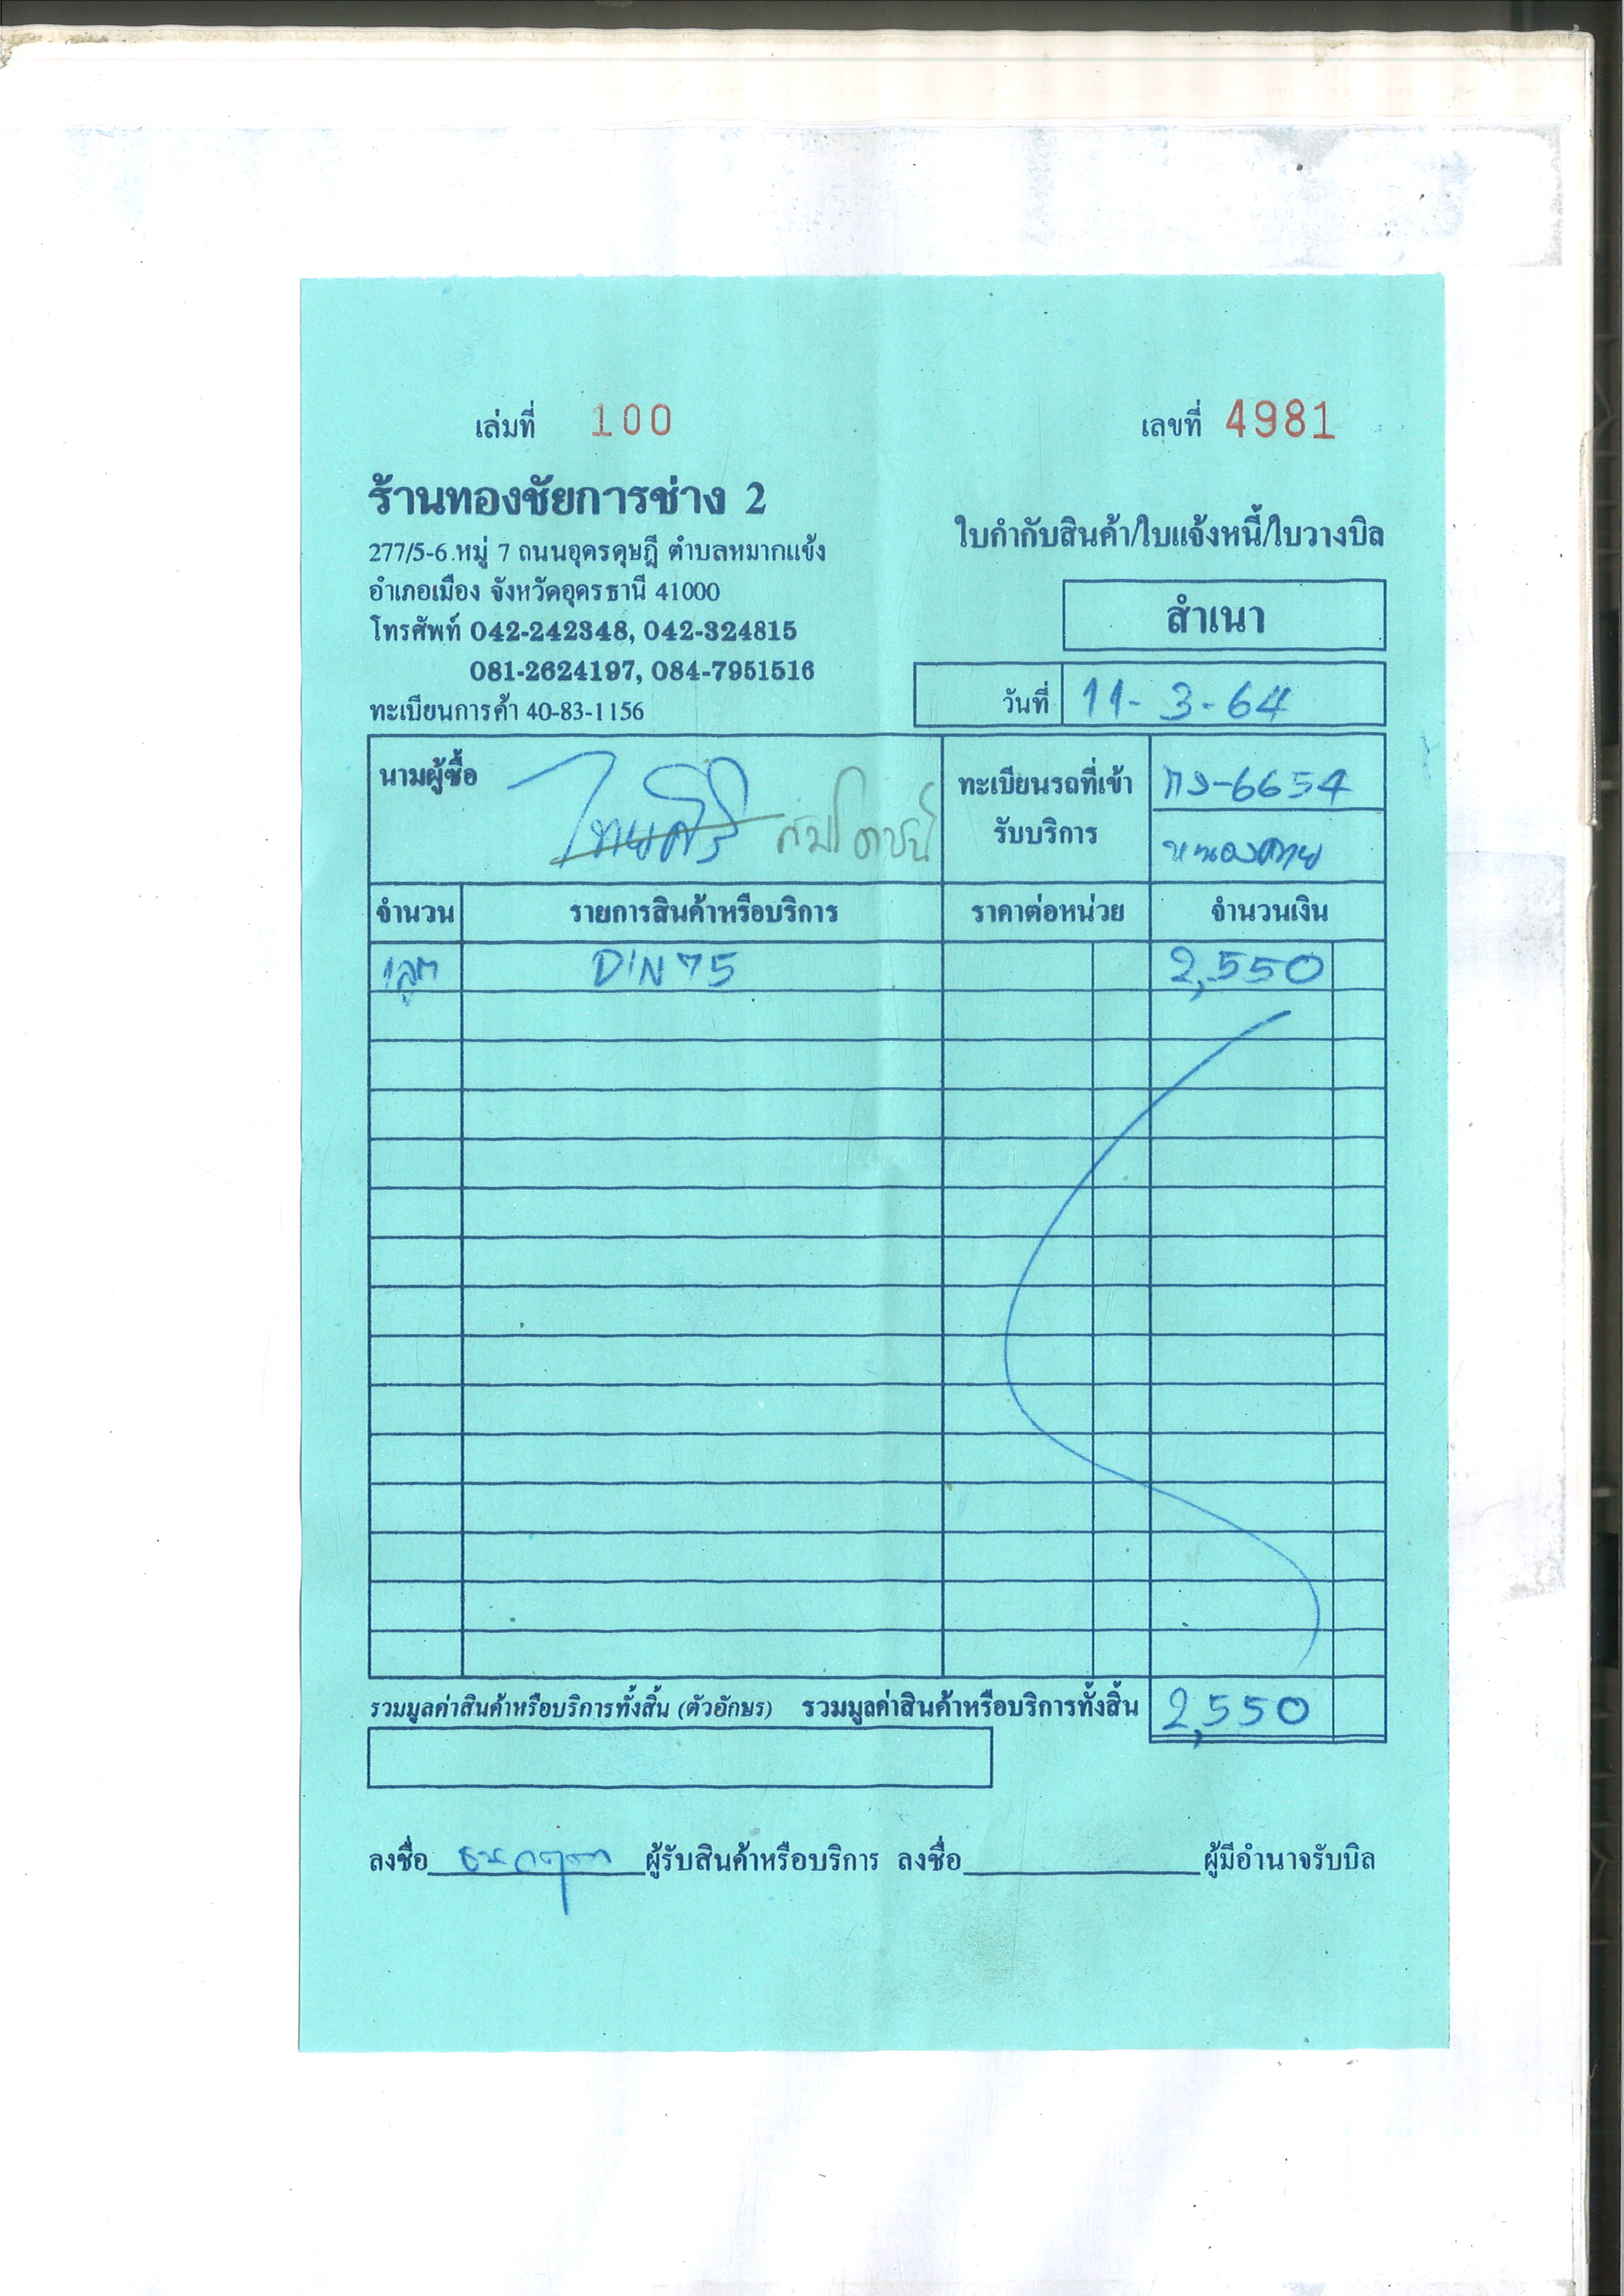 เล่มที่ 100
เลขที่ 4981
ร้านทองชัยการช่าง 2
277/5-6 หมู่ 7 ถนนอุดรดุษฎี ตำบลหมากแข้ง
อำเภอเมือง จังหวัดอุดรธานี 41000
โทรศัพท์ 042-242348, 042-324815
081-2624197, 084-7951516
ทะเบียนการค้า 40-83-1156
ใบกำกับสินค้า/ใบแจ้งหนี้/ใบวางบิล
สำเนา
วันที่ 11-3-64
นามผู้ซื้อ ไทยศิริ
ทะเบียนรถที่เข้า กง-6654
รับบริการ หนองคาย
จำนวน รายการสินค้าหรือบริการ ราคาต่อหน่วย จำนวนเงิน
1ลูก DIN 75 2,550
รวมมูลค่าสินค้าหรือบริการทั้งสิ้น (ตัวอักษร) รวมมูลค่าสินค้าหรือบริการทั้งสิ้น 2,550
ลงชื่อ ผู้รับสินค้าหรือบริการ ลงชื่อ ผู้มีอำนาจรับบิล